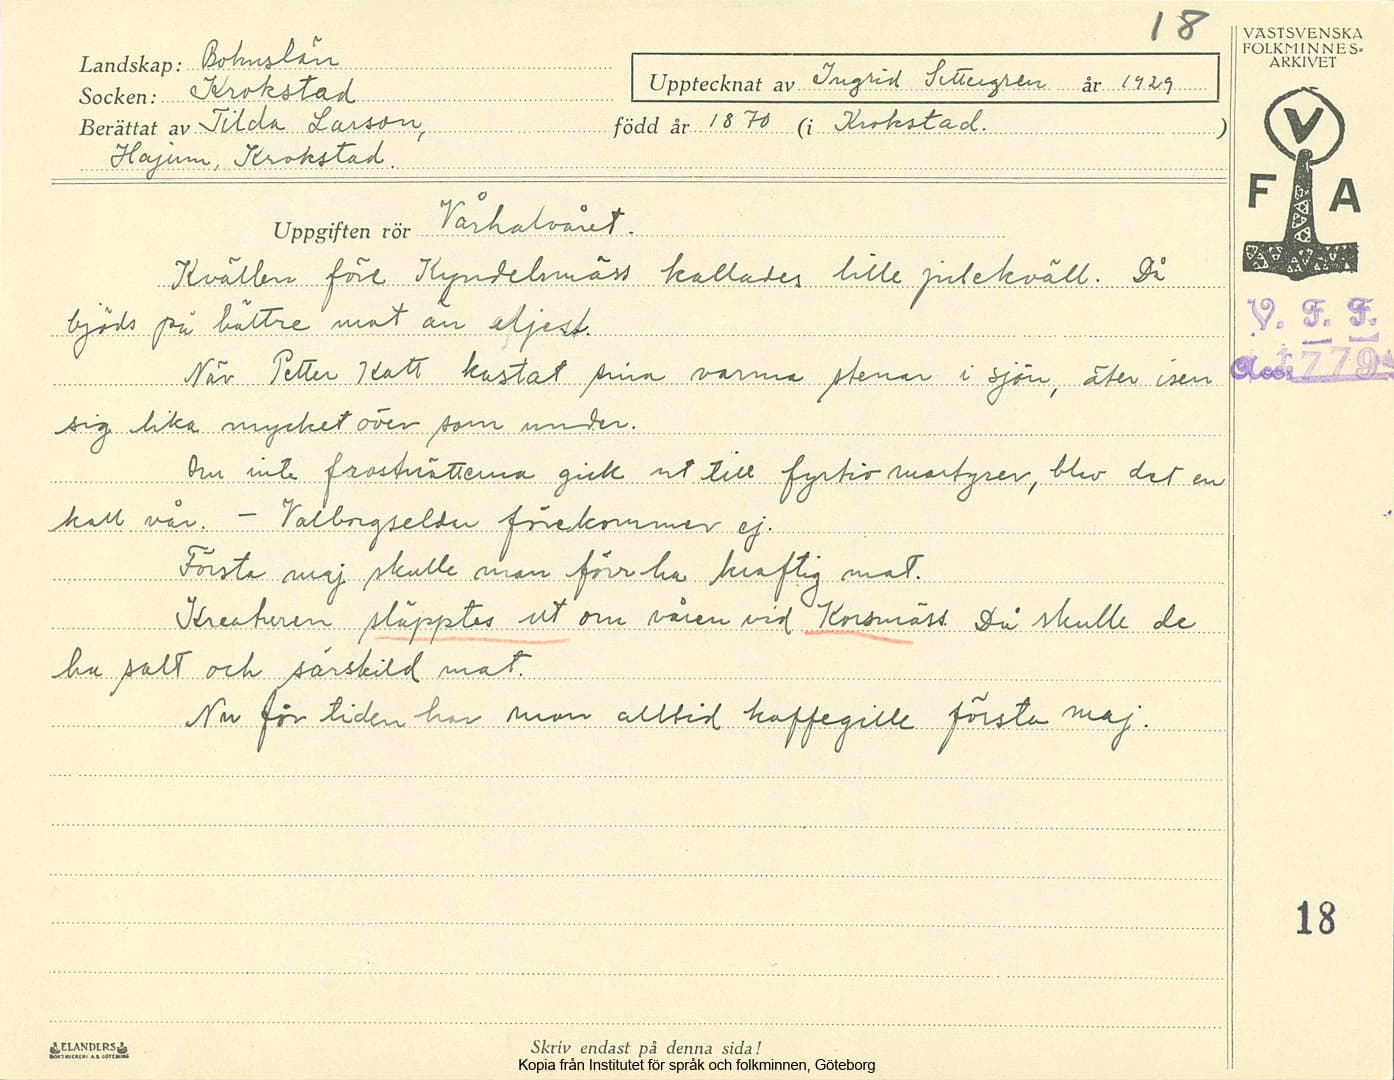 18
VÄSTSVENSKA
FOLKMINNES-
ARKIVET
Landskap: Bohuslän
Upptecknat av Ingrid år 1929
Socken: Krokstad
Berättat av Tilda Larson, född år 1870 (i Krokstad. )
Hajum, Krokstad.
V
F A
Uppgiften rör Vårhalvåret.
Kvällen före Kyndelsmäss kallades lille julekväll. Då
bjöds på bättre mat än eljest.
V. F. F.
När Petter Katt kastat sina varma stenar i sjön, äter isen
Acc. 1779
sig lika mycket över som under.
Om inte frostnätterna gick ut till fyrtio martyrer, blev det en
kall vår. – Valborgseldar förekommer ej.
Första maj skulle man förr ha kraftig mat.
Kreaturen släpptes ut om våren vid Korsmäss. Då skulle de
ha salt och särskild mat.
Nu för tiden har man alltid kaffegille första maj.
18
ELANDERS
BOKTRYCKERI A.B. GÖTEBORG
Skriv endast på denna sida!
Kopia från Institutet för språk och folkminnen, Göteborg